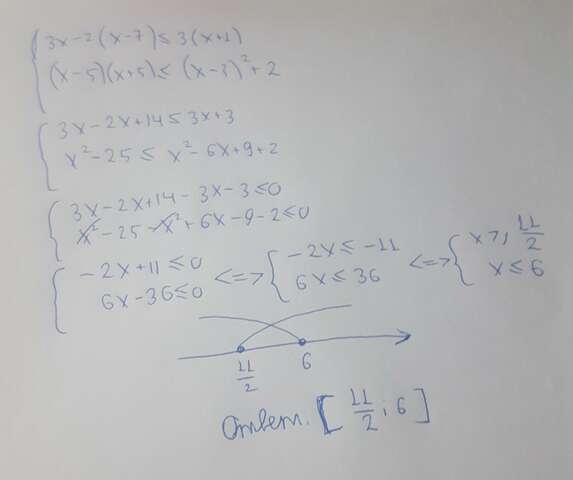 3x-2(x-7)≤3(x+1)
(x-5)(x+5)≤(x-3)²+2
3x-2x+14≤3x+3
x²-25≤x²-6x+9+2
3x-2x+14-3x-3≤0
x²-25-x²+6x-9-2≤0
-2x+11≤0 <=> -2x≤-11 <=> x≥11/2
6x-36≤0 6x≤36 x≤6
11/2 6
Ответ. [11/2; 6]